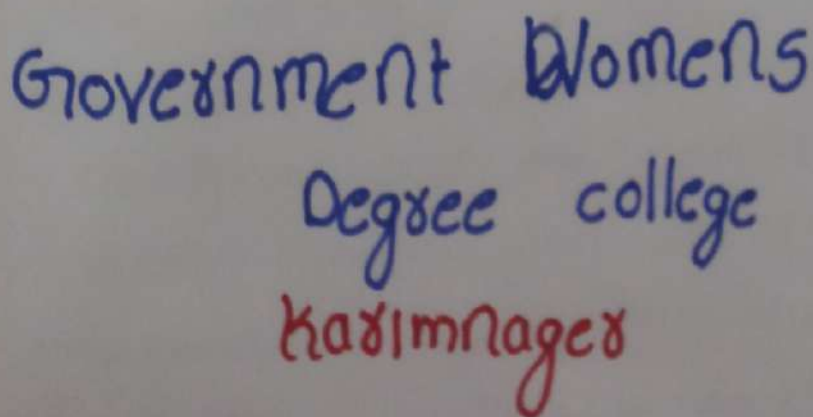 Government Womens
Degree college
Karimnager